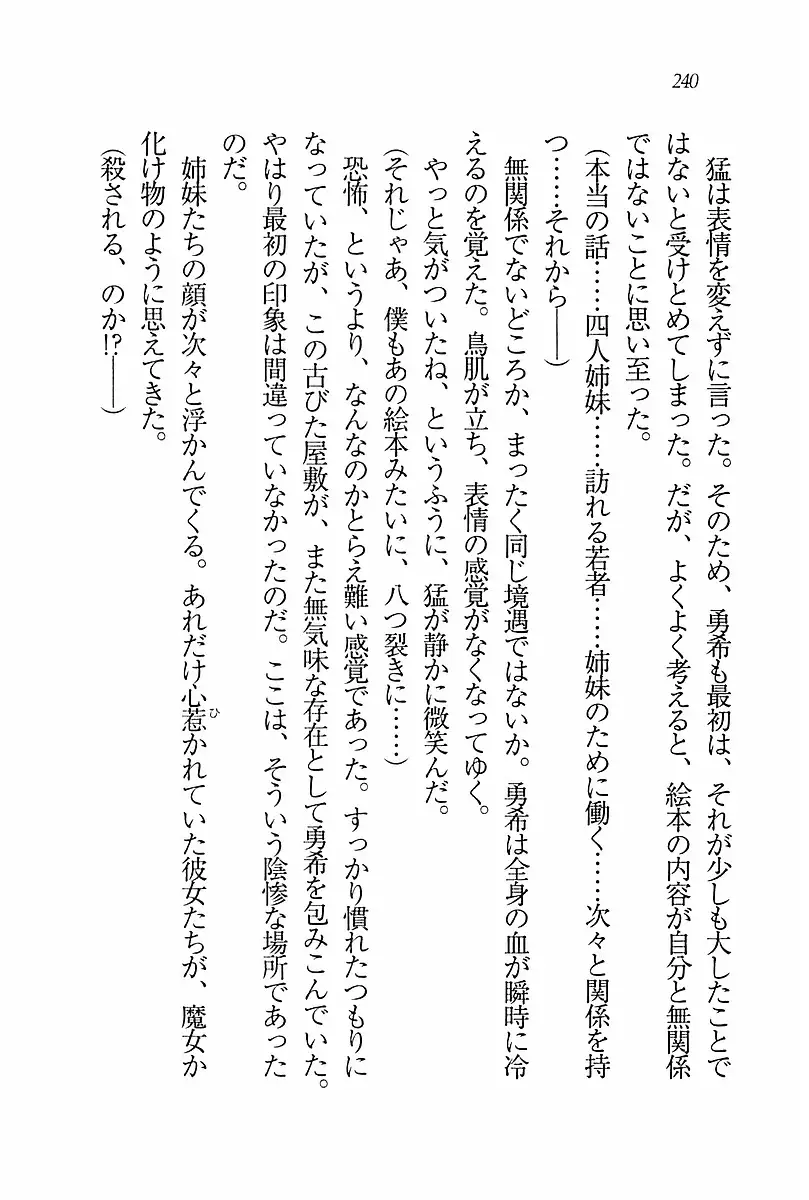 240
猛は表情を変えずに言った。そのため、勇希も最初は、それが少しも大したことで
はないと受けとめてしまった。だが、よくよく考えると、絵本の内容が自分と無関係
ではないことに思い至った。
（本当の話……四人姉妹……訪れる若者……姉妹のために働く……次々と関係を持
つ……それから――）
無関係でないどころか、まったく同じ境遇ではないか。勇希は全身の血が瞬時に冷
えるのを覚えた。鳥肌が立ち、表情の感覚がなくなってゆく。
やっと気がついたね、というふうに、猛が静かに微笑んだ。
（それじゃあ、僕もあの絵本みたいに、八つ裂きに……）
恐怖、というより、なんなのかとらえ難い感覚であった。すっかり慣れたつもりに
なっていたが、この古びた屋敷が、また無気味な存在として勇希を包みこんでいた。
やはり最初の印象は間違っていなかったのだ。ここは、そういう陰惨な場所であった
のだ。
姉妹たちの顔が次々と浮かんでくる。あれだけ心惹かれていた彼女たちが、魔女か
化け物のように思えてきた。
（殺される、のか!?――）
ひ